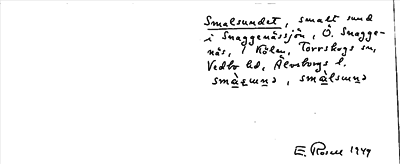 Smalsundet, smalt sund
i Snaggenässjön, Ö. Snagge-
näs, Köln, Torrskogs sn,
Vedbo hd, Älvsborgs l.
smàsuns, smàlsuns
E. Rosell 1949